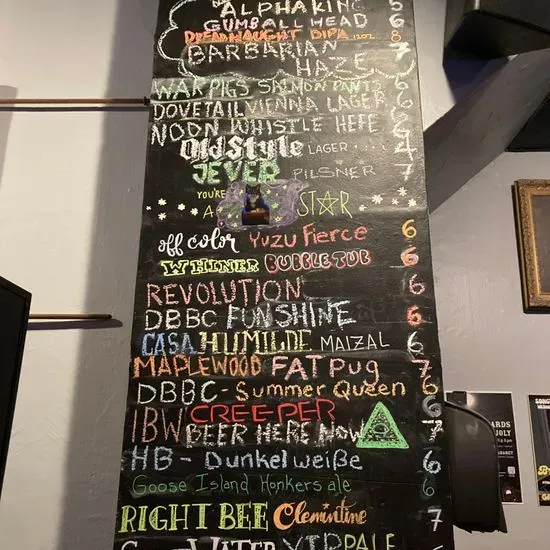 ALPHA KING 5
GUMBALLHEAD 6
DREADNAUGHT DIPA 12OZ. 8
BARBARIAN 7
HAZE
WARPIGS SALMON PANTS 6
DOVETAIL VIENNA LAGER 6
NOON WHISTLE HEFE 6
Old Style LAGER .... 4
JEVER PILSNER 7
YOU'RE
A STAR
off color Yuzu Fierce 6
WHINER BUBBLE TUB 6
REVOLUTION 6
DBBC FUNSHINE 6
CASA HUMILDE MAIZAL 6
MAPLEWOOD FAT Pug 7
DBBC - Summer Queen 6
IBW CREEPER 6
BEER HERE NOW 7
HB - Dunkelweiße 6
Goose Island Honkers ale 6
RIGHT BEE Clemintine 7
PALE